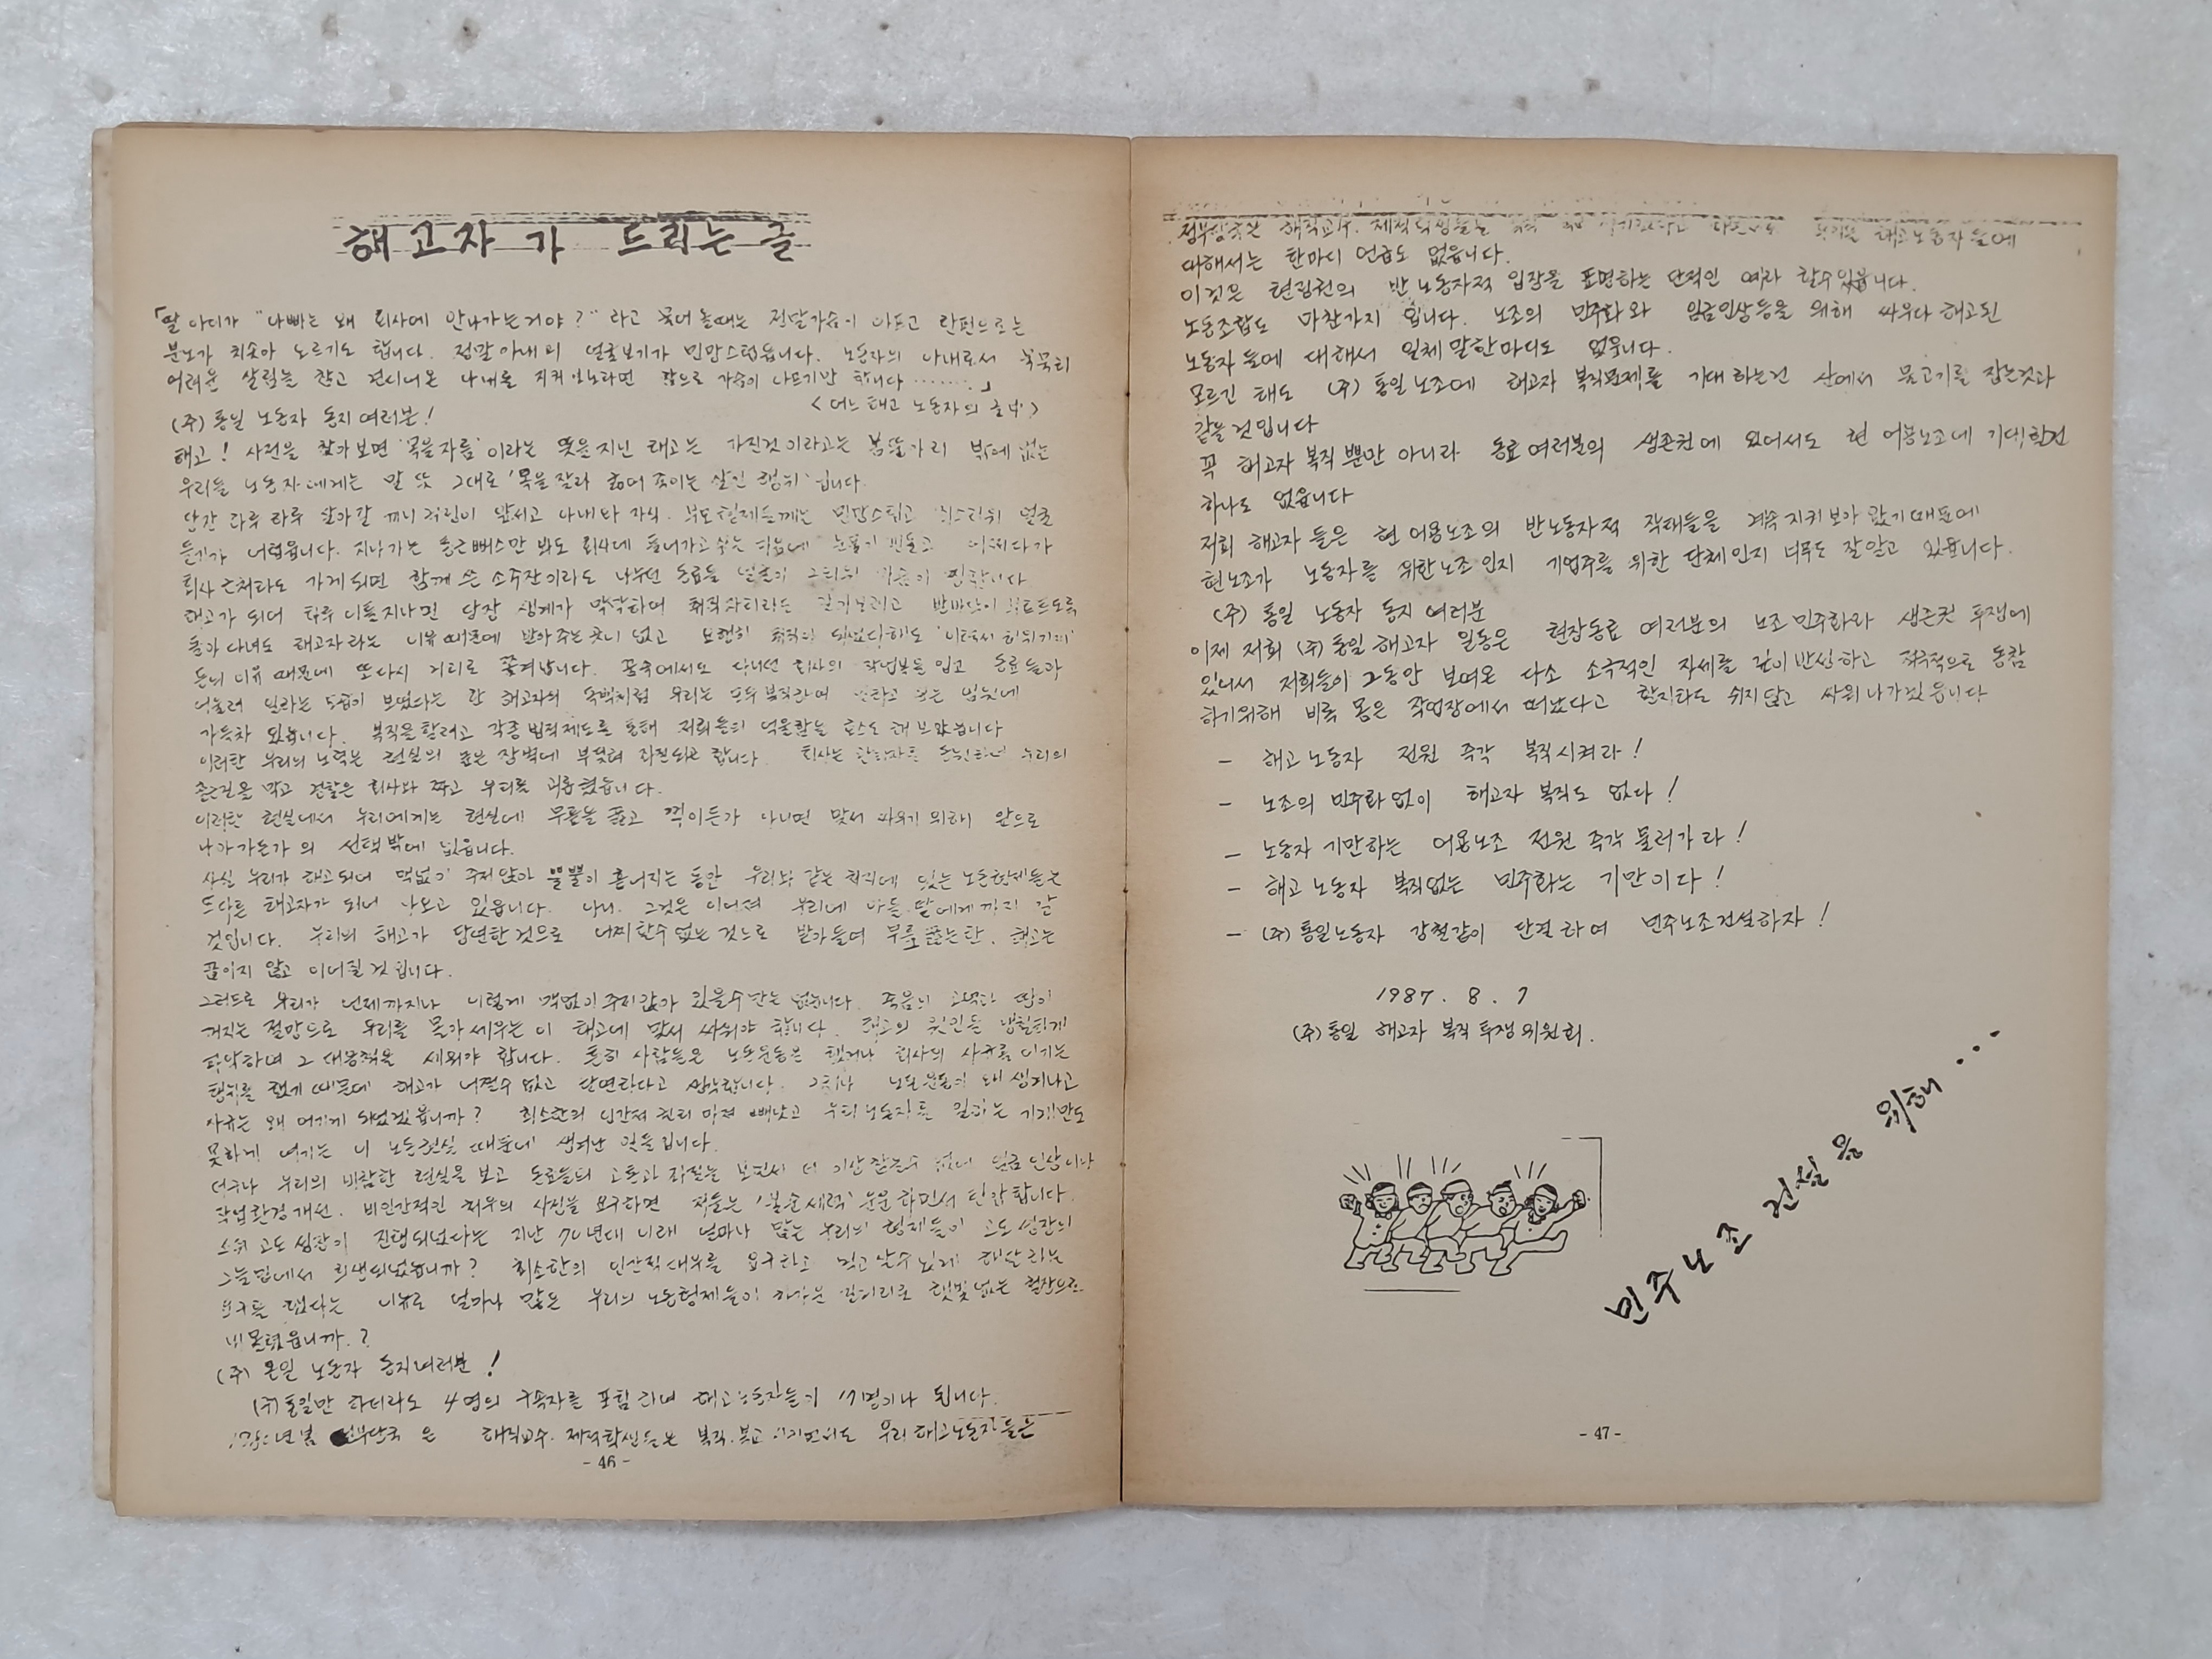 해고자가 드리는 글
「딸 아이가 "아빠는 왜 회사에 안나가는거야?" 라고 물어 올때는 정말가슴이 아프고 한편으로는
분노가 치솟아 오르기도 합니다. 정말 아내의 얼굴보기가 민망스럽습니다. 노동자의 아내로서 묵묵히
어려운 살림을 참고 견디어온 아내를 지켜 참으로 가슴이 아프기만 합니다 ........」
<어느 해고 노동자의 글中>
(주) 통일 노동자 동지 여러분!
해고! 사전을 찾아보면 '목을자름' 이라는 뜻을 지닌 해고는 가진것이라고는 몸뚱아리 밖에 없는
우리들 노동자에게는 말 뜻 그대로 '목을 잘라 굶어 죽이는 살인 행위' 입니다.
당장 하루 하루 살아갈 끼니 걱정이 앞서고 아내와 자식. 부모형제들께는 민망스럽고 얼굴
들기가 어렵습니다. 지나가는 통근뻐스만 봐도 회사에 들어가고싶은 마음에 눈물이 핑돌고 어쩌다가
회사 근처라도 가게되면 함께 쓴 소주잔이라도 나누던 동료들 얼굴이 그리워 가슴이 찡합니다
해고가 되어 하루 이틀지나면 당장 생계가 막막하여 취직자리라도 발바닥이 부르트도록
돌아 다녀도 해고자라는 이유 때문에 받아주는곳이 없고 요행히 취직이 되었다해도 '이력서 허위기재'
등의 이유 때문에 또다시 거리로 쫓겨납니다. 꿈속에서도 다니던 회사의 작업복을 입고 동료들과
어울려 일하는 모습이 보였다는 한 해고자의 독백처럼 우리는 모두 복직하여 일하고 싶은 마음에
가득차 있습니다. 복직을 할려고 각종 법적제도를 통해 저희들의 억울함을 호소도 해 보았습니다
이러한 우리의 노력은 현실의 높은 장벽에 부딪혀 좌절되곤 합니다. 회사는 우리의
손길을 막고 경찰은 회사와 짜고 우리를 괴롭혔습니다.
이러한 현실에서 우리에게는 현실에 무릎을 꿇고 죽어든가 아니면 맞서 싸우기 위하여 앞으로
나아가든가의 선택밖에 없습니다.
사실 우리가 해고되어 맥없이 주저앉아 뿔뿔이 흩어지는 동안 우리와 같은 처지에 있는 노동형제들은
또다른 해고자가 되어 나오고 있습니다. 아니. 그것은 이어져 우리네 아들.딸에게까지 갈
것입니다. 우리의 해고가 당연한 것으로 어찌할수 없는 것으로 받아들여 무릎 꿇는한. 해고는
끊이지 않고 이어질 것입니다.
그러므로 우리가 언제까지나 이렇게 맥없이 주저앉아 있을수만은 없습니다. 죽음의 고역과 땅이
꺼지는 절망으로 우리를 몰아세우는 이 해고에 맞서 싸워야 합니다. 해고의 원인을 냉철하게
파악하여 그 대응책을 세워야 합니다. 흔히 사람들은 노동운동을 했거나 회사의 사규를 어기는
행위를 했기 때문에 해고가 어쩔수 없고 당연하다고 생각합니다. 그러나 노동운동이 왜 생겨나고
사규는 왜 어기게 되었겠읍니까? 최소한의 인간적 권리마져 빼앗고 우리 노동자를 일하는 기계만도
못하게 여기는 이 노동현실 때문에 생겨난 일들입니다.
더구나 우리의 비참한 현실을 보고 동료들의 고통과 좌절을 보면서 더 이상 참을수 없어 임금 인상이나
작업환경개선. 비인간적인 처우의 시정을 요구하면 저들은 '불순 세력' 운운 하면서 탄압합니다.
소위 고도 성장이 진행되었다는 지난 70년대 이래 얼마나 많은 우리의 형제들이 고도 성장의
그늘밑에서 희생되었습니까? 최소한의 인간적대우를 요구하고 먹고 살수 있게 해달라는
요구를 했다는 이유로 얼마나 많은 우리의 노동형제들이 차가운 길거리로 햇빛 없는 철창으로
내 몰렸읍니까.?
(주) 통일 노동자 동지여러분!
(주)통일만 하더라도 4명의 구속자를 포함하여 해고노동자들이 17명이나 됩니다.
정부당국은 해직교수. 제적학생들은 복직.복교 우리 해고노동자들은
- 46 -
정부당국은 해직교수. 제적학생들은 해고노동자들에
대해서는 한마디 언급도 없읍니다.
이것은 현정권의 반노동자적 입장을 표명하는 단적인 예라 할수있읍니다.
노동조합도 마찬가지 입니다. 노조의 민주화와 임금인상등을 위해 싸우다 해고된
노동자들에 대해서 일체 말한마디도 없읍니다.
모르긴 해도 (주) 통일노조에 해고자 복직문제를 기대하는건 산에서 물고기를 잡는것과
같을것입니다
꼭 해고자 복직뿐만 아니라 동료여러분의 생존권에 있어서도 현 어용노조에 기대할건
하나도 없읍니다
저희 해고자 들은 현 어용노조의 반노동자적 작태들을 계속 지켜보아 왔기때문에
현노조가 노동자를 위한노조인지 기업주를 위한 단체인지 너무도 잘알고 있읍니다.
(주) 통일 노동자 동지 여러분
이제 저희 (주)통일 해고자 일동은 현장동료 여러분의 노조민주화와 생존권 투쟁에
있어서 저희들이 그동안 보여온 다소 소극적인 자세를 깊이반성하고 적극적으로 동참
하기위해 비록 몸은 작업장에서 떠났다고 할지라도 쉬지않고 싸워나가겠읍니다
- 해고노동자 전원 즉각 복직시켜라!
- 노조의 민주화없이 해고자 복직도 없다!
- 노동자 기만하는 어용노조 전원 즉각 물러가라!
- 해고 노동자 복직없는 민주화는 기만이다!
- (주)통일노동자 강철같이 단결하여 민주노조건설하자!
1987. 8. 7
(주)통일 해고자 복직투쟁위원회.
민주노조 건설을 위해...
- 47 -